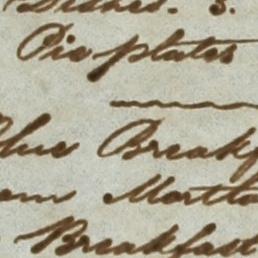 Dishes. 3.
Pie plates
Blue Breakf
Mortta
Breakfast